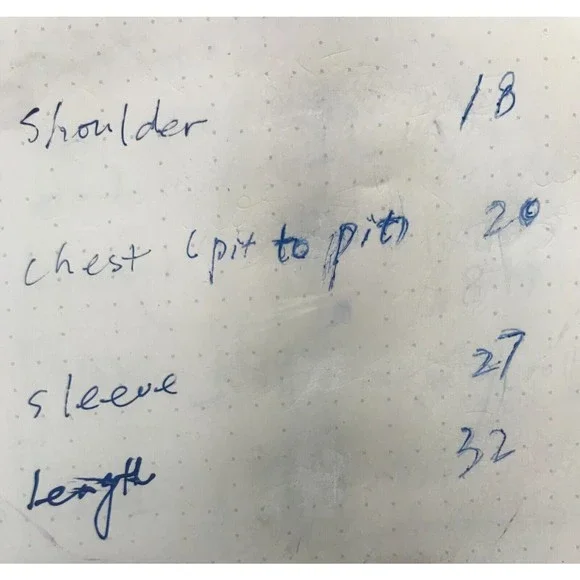 Shoulder 18
Chest (pit to pit) 20
Sleeve 27
Length 32